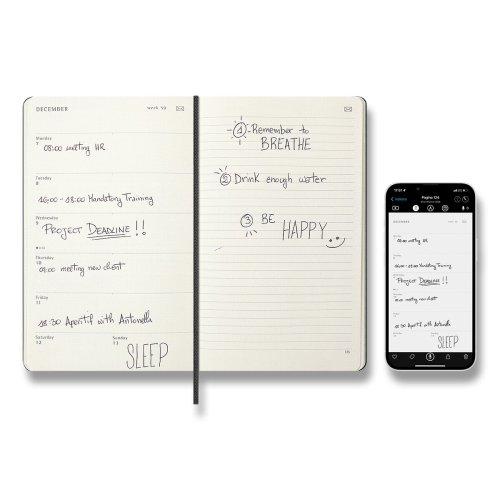 DECEMBER
Monday
7
08:00 meeting HR
Tuesday
8
16:00 - 18:00 Mandatory Training
Wednesday
9
PROJECT DEADLINE!!
Thursday
10
09:00 meeting new client
Friday
11
18:30 Aperitif with Antonella
Saturday
12
Sunday
13
SLEEP
1 - Remember to
BREATHE
2 Drink enough water
3 BE
HAPPY
Pagina 124
DECEMBER
08:00 meeting HR
16:00 - 18:00 Mandatory Training
PROJECT DEADLINE!!
09:00 meeting new client
18:30 Aperitif with Antonella
SLEEP